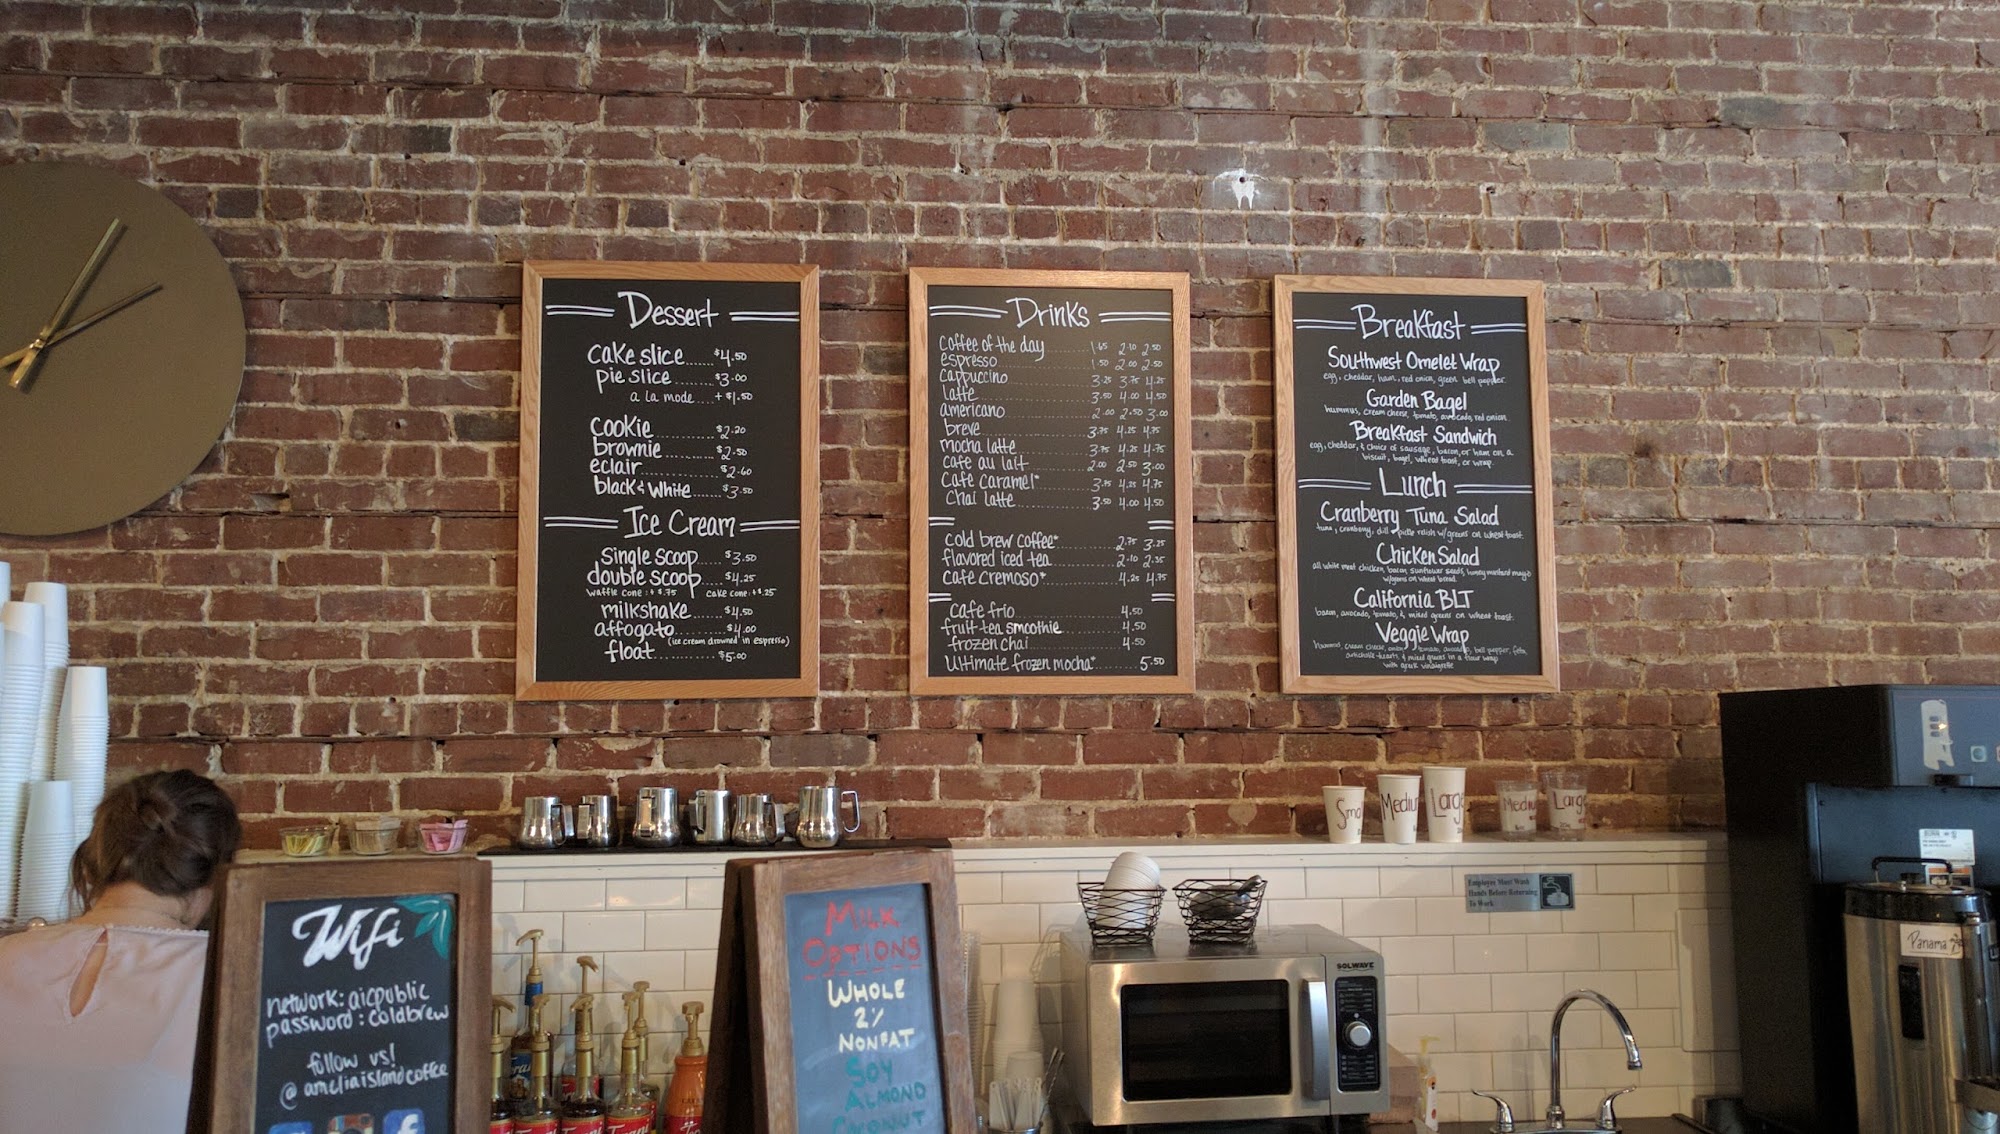 Dessert
cake slice......$4.50
pie slice........$3.00
a la mode....+ $1.50
cookie............$2.20
brownie..........$2.50
eclair..............$2.60
black & white......$3.50
Ice Cream
single scoop....$3.50
double scoop....$4.25
waffle cone: + $.75 cake cone: + $.25
milkshake.......$4.50
affogato.........$4.00
(ice cream drowned in espresso)
float..............$5.00
Drinks
coffee of the day.......1.65 2.10 2.50
espresso.......1.50 2.00 2.50
cappuccino.......3.25 3.75 4.25
latte.......3.50 4.00 4.50
americano.......2.00 2.50 3.00
breve.......3.75 4.25 4.75
mocha latte.......3.75 4.25 4.75
cafe au lait.......2.00 2.50 3.00
cafe caramel*.......3.75 4.25 4.75
chai latte.......3.50 4.00 4.50
cold brew coffee*.......2.75 3.25
flavored iced tea.......2.10 2.35
cafe cremoso*.......4.25 4.75
cafe frio.......4.50
fruit tea smoothie.......4.50
frozen chai.......4.50
ultimate frozen mocha*.......5.50
Breakfast
Southwest Omelet Wrap
egg, cheddar, ham, red onion, green bell pepper
Garden Bagel
hummus, cream cheese, tomato, avocado, red onion
Breakfast Sandwich
egg, cheddar, & choice of sausage, bacon, or ham on a
biscuit, bagel, wheat toast, or wrap
Lunch
Cranberry Tuna Salad
tuna, cranberry, dill pickle relish w/greens on wheat toast
Chicken Salad
all white meat chicken, bacon, sunflower seeds, honey mustard mayo
w/greens on wheat bread
California BLT
bacon, avocado, tomato, & mixed greens on wheat toast
Veggie Wrap
hummus, cream cheese, onion, tomato, avocado, bell pepper, feta,
artichoke hearts, & mixed greens in a flour wrap
with greek vinaigrette
Small
Medium
Large
Medium
Large
Employees Must Wash
Hands Before Returning
To Work
Wifi
network: aicpublic
password: coldbrew
follow us!
@ameliaislandcoffee
MILK
OPTIONS
WHOLE
2%
NONFAT
SOY
ALMOND
COCONUT
SOLWAVE
Panama
Torani